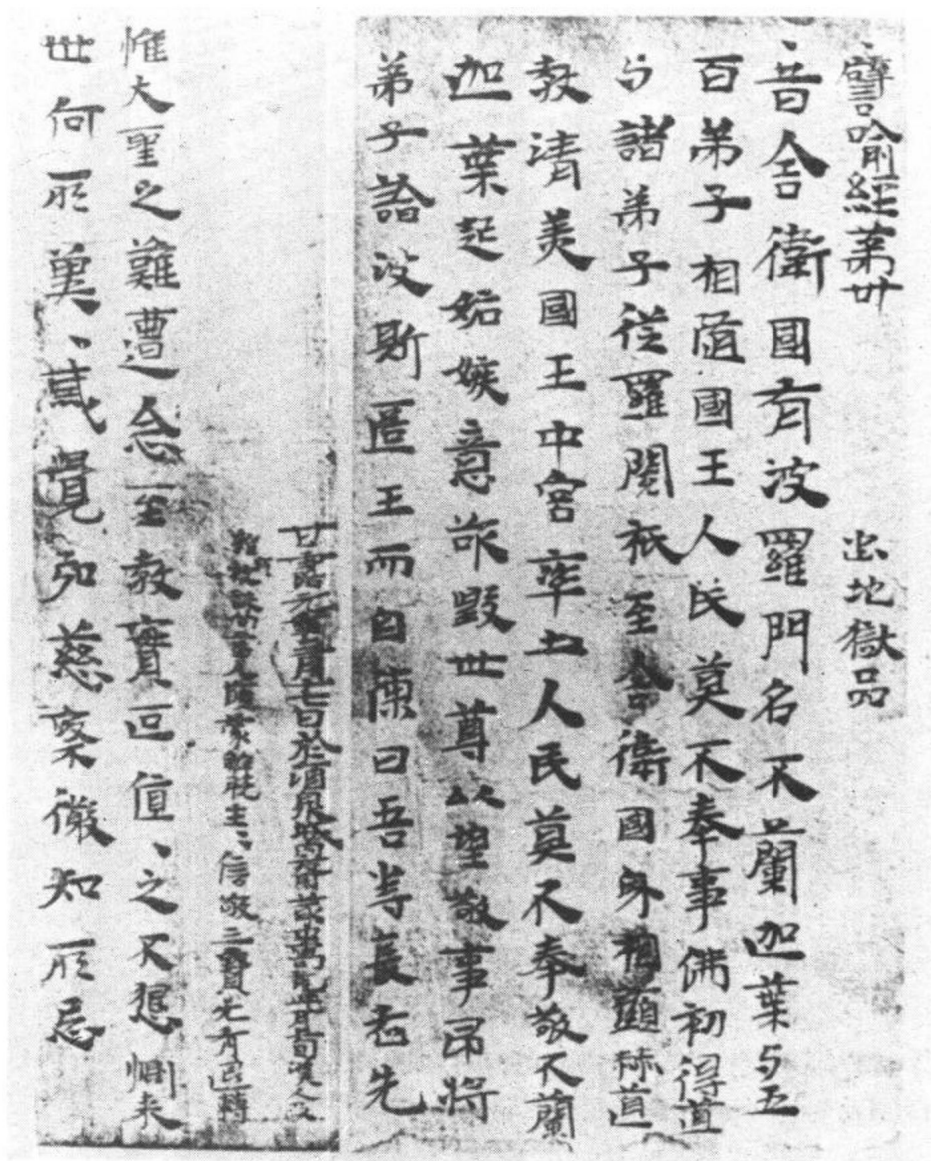 譬喻經第卅 出地獄品
昔舍衛國有波羅門名不蘭迦葉与五
百弟子相隨國王人民莫不奉事佛初得道
与諸弟子從羅閱祇至舍衛國身相顯赫道
教清美國王中宮率土人民莫不奉敬不蘭
迦葉起妬嫉意欲毀世尊以望敬事即將
弟子詣波斯匿王而自陳曰吾等長老先
甘露元年三月十七日於酒泉城內齋叢中寫訖此月上旬漢人及
雜類被誅向二百人願蒙解脫生、信敬三寶无有退轉
惟大聖之難遭念至教寶叵值、之不懇惻夫
世何所冀、貳覺弘慈 知所忌